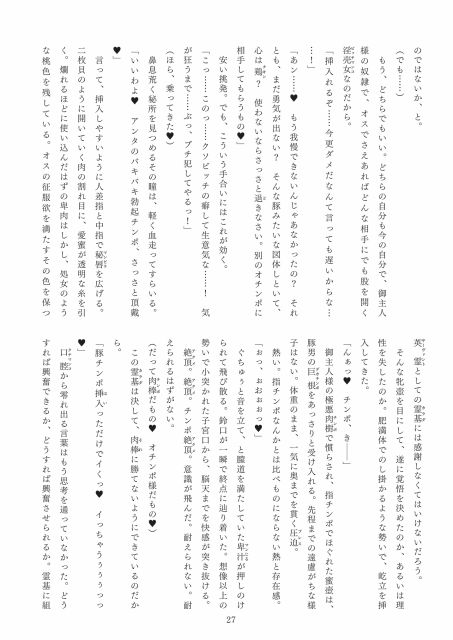 のではないか、と。
(でも……)
もう、どちらでもいい。どちらの自分も今の自分で、御主人
様の奴隷で、オスでさえあればどんな相手にでも股を開く
淫売女なのだから。
「挿入れるぞ……今更ダメだなんて言っても遅いからな…
…！」
「あン……♥　もう我慢できないんじゃあなかったの？　それ
とも、まだ勇気が出ない？　そんな豚みたいな図体しといて、
心は鶏？　使わないならさっさと退きなさい。別のオチンポに
相手してもらうもの♥」
安い挑発。でも、こういう手合いにはこれが効く。
「こっ……このっ……クソビッチの癖して生意気な……！　気
が狂うまで……ぶっ、ブチ犯してやるっ！」
(ほら、乗ってきた♥)
鼻息荒く秘所を見つめるその瞳は、軽く血走ってすらいる。
「いいわよ♥　アンタのバキバキ勃起チンポ、さっさと頂戴
♥」
言って、挿入しやすいように人差指と中指で秘唇を広げる。
二枚貝のように開いていく肉の割れ目に、愛蜜が透明な糸を引
く。爛れるほどに使い込んだはずの卑肉はしかし、処女のよう
な桃色を残している。オスの征服欲を満たすその色を保つ
英霊としての霊基には感謝しなくてはいけないだろう。
そんな牝壺を目にして、遂に覚悟を決めたのか、あるいは理
性を失したのか。肥満体でのし掛かるような勢いで、屹立を挿
入してきた。
「んぁっ♥　チンポ、き――」
御主人様の極悪肉樹で慣らされ、指チンポでほぐれた蜜壺は、
豚男の巨根をあっさりと受け入れる。先程までの遠慮がちな様
子はない。体重のまま、一気に奥までを貫く圧迫。
熱い。指チンポなんかとは比べものにならない熱と存在感。
「おっ、おおぉぉっ♥」
ぐちゅぅと音を立て、と膣道を満たしていた卑汁が押しのけ
られて飛び散る。鈴口が一瞬で終点に辿り着いた。想像以上の
勢いで小突かれた子宮口から、脳天までを快感が突き抜ける。
絶頂。絶頂。チンポ絶頂。意識が飛んだ。耐えられない。耐
えられるはずがない。
(だって肉棒だもの♥　オチンポ様だもの♥)
この霊基は決して、肉棒に勝てないようにできているのだか
ら。
「豚チンポ挿入っただけでイくっ♥　イっちゃうぅぅぅっっ
♥」
口腔から零れ出る言葉はもう思考を通っていなかった。どう
すれば興奮できるか、どうすれば興奮させられるか。霊基に組
27